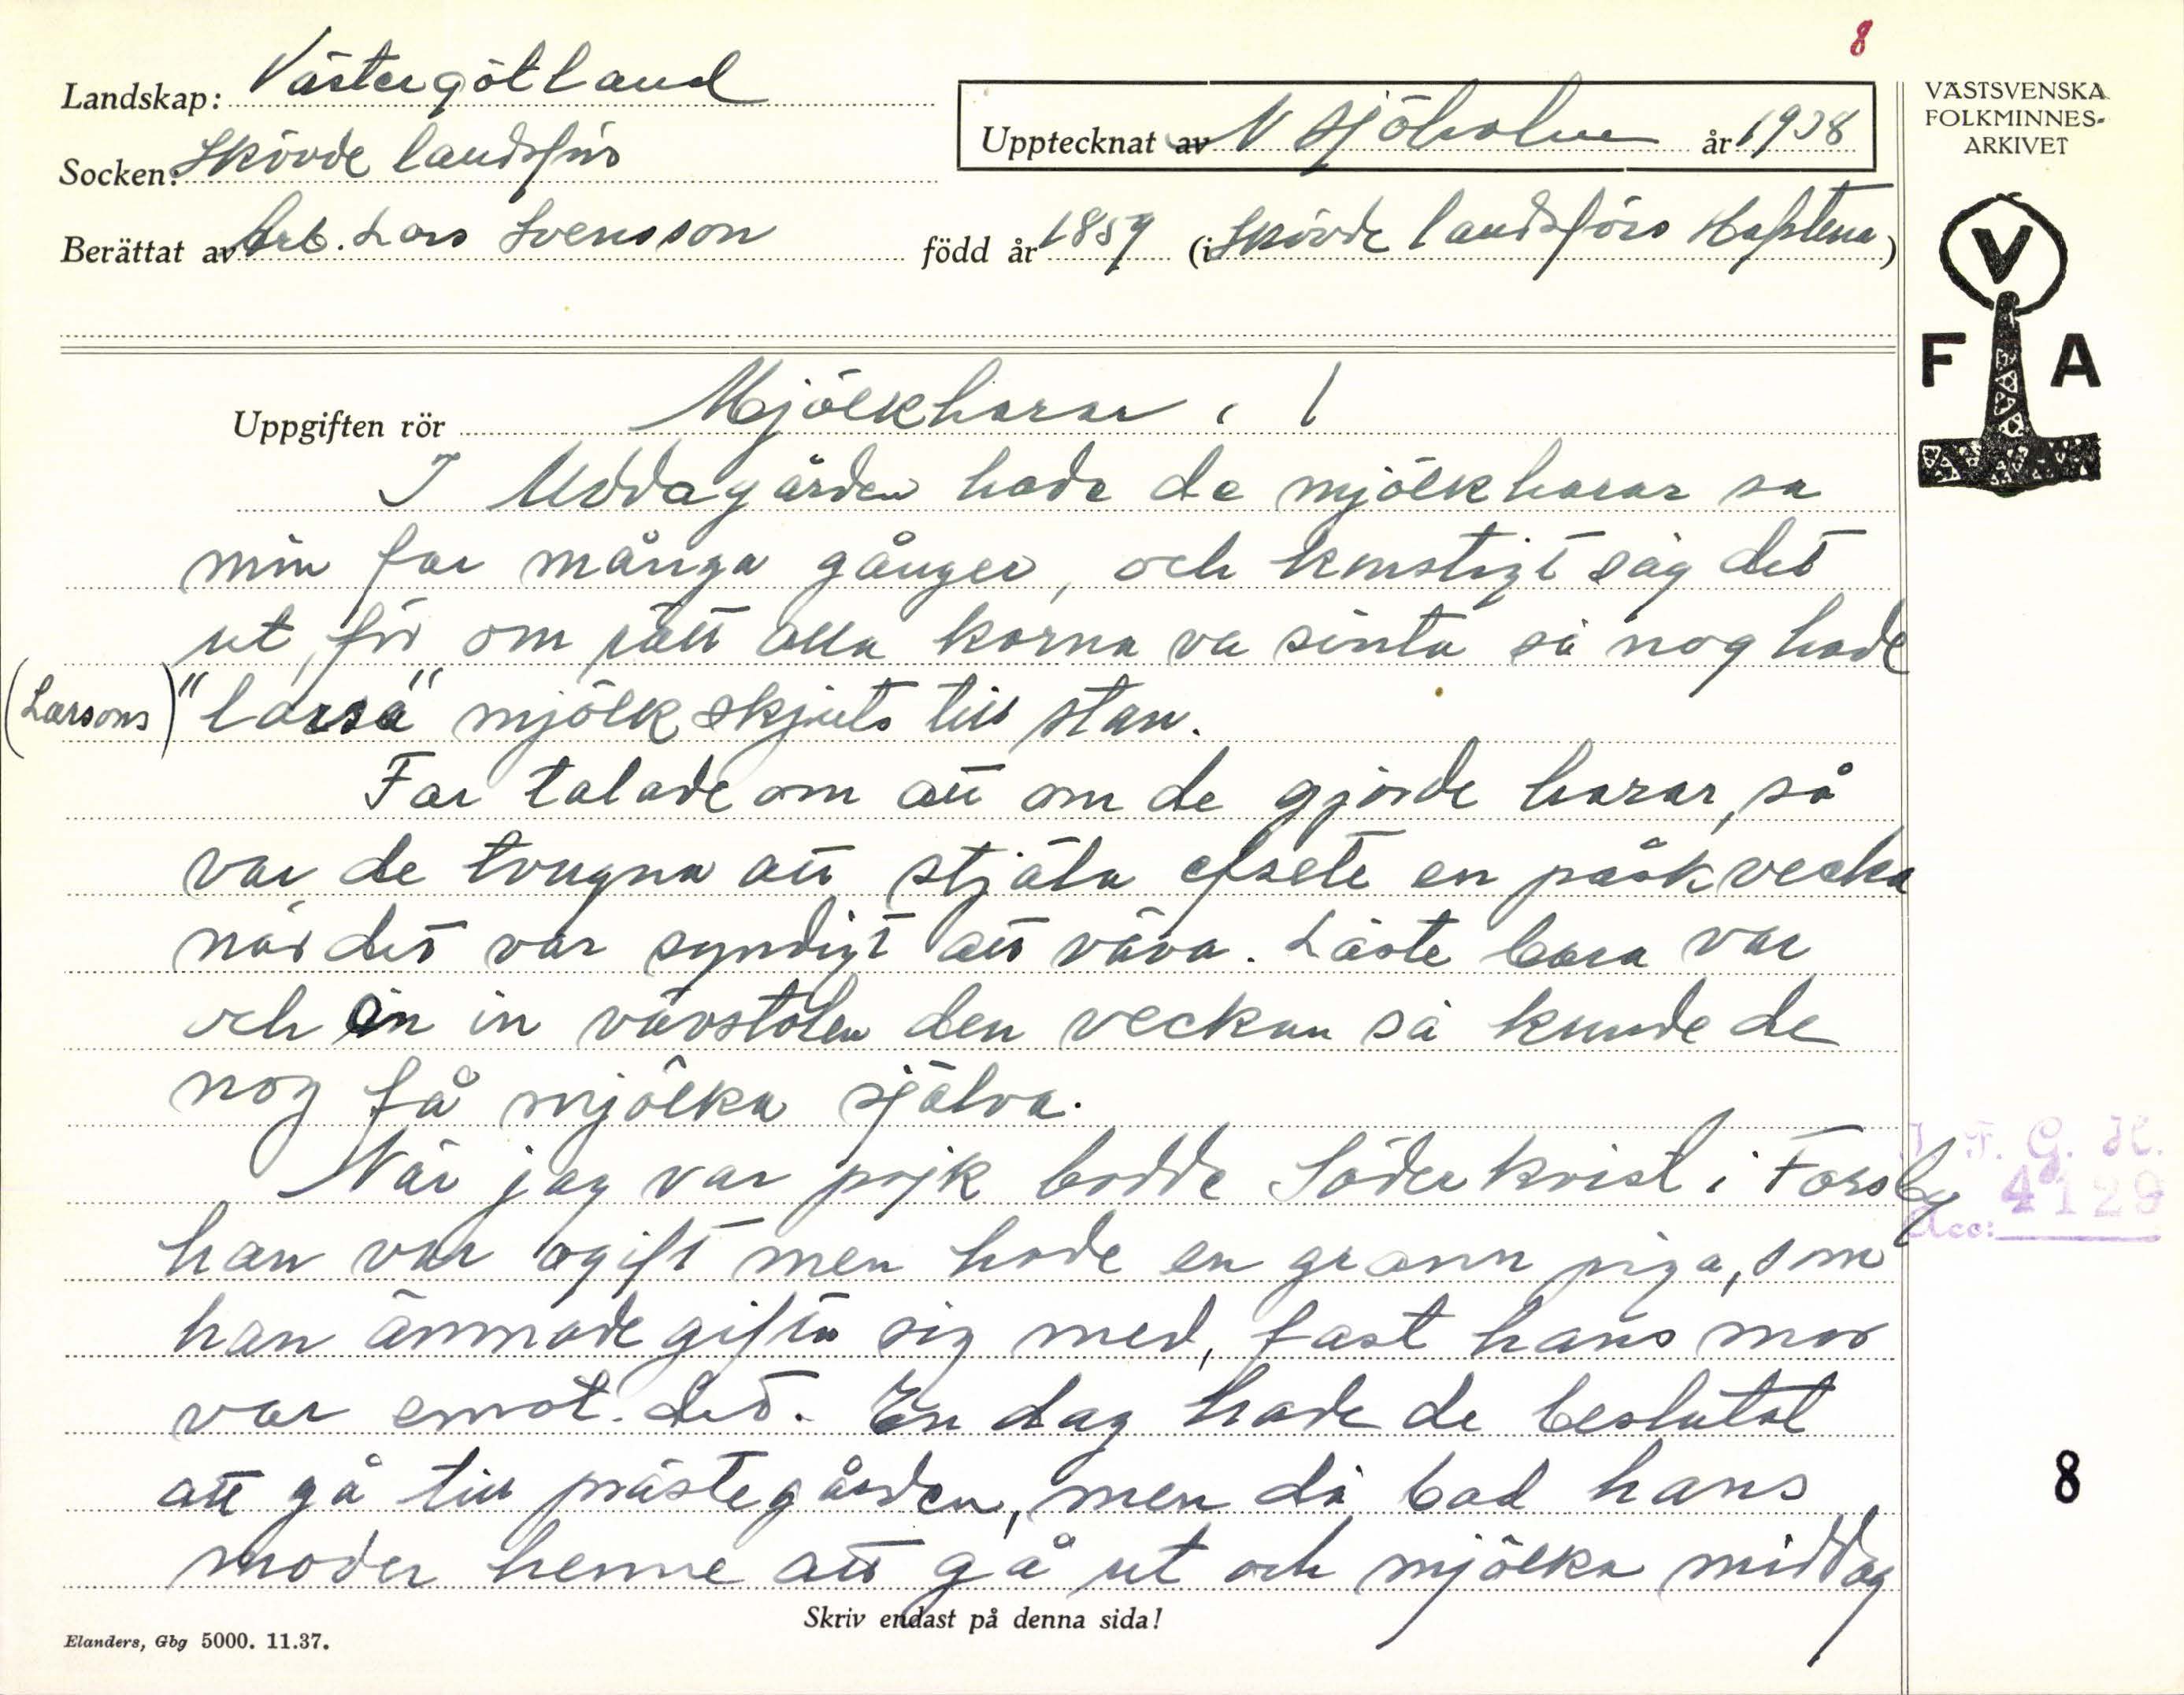 8
Landskap: Västergötland
Socken: Skövde landsförs
Upptecknat av N Sjöholm år 1938
VÄSTSVENSKA
FOLKMINNES-
ARKIVET
Berättat av Arb. Lars Svensson född år 1859 (i Skövde landsförs Hasslena)
V
F A
Uppgiften rör Mjölkharar. 1
I Uddagården hade de mjölkharar sa
min far många gånger, och konstigt såg det
ut, för om rätt alla korna va sinta så nog hade
(Larsons) "larsa" mjölkskjuts till stan.
Far talade om att om de gjorde harar, så
var de tvugna att stjäla efsete en påskvecka
när det var syndigt att väva. Låste bara var
och en in vävstolen den veckan så kunde de
nog få mjölka själva.
När jag var pojk bodde Söderkvist i Forsby
han var ogift men hade en grann piga, som
han ämnade gifta sig med, fast hans mor
var emot det. En dag hade de beslutat
att gå till prästegården, men då bad hans
moder henne att gå ut och mjölka middag
I. F. G. H.
Acc: 4129
8
Skriv endast på denna sida!
Elanders, Gbg 5000. 11.37.